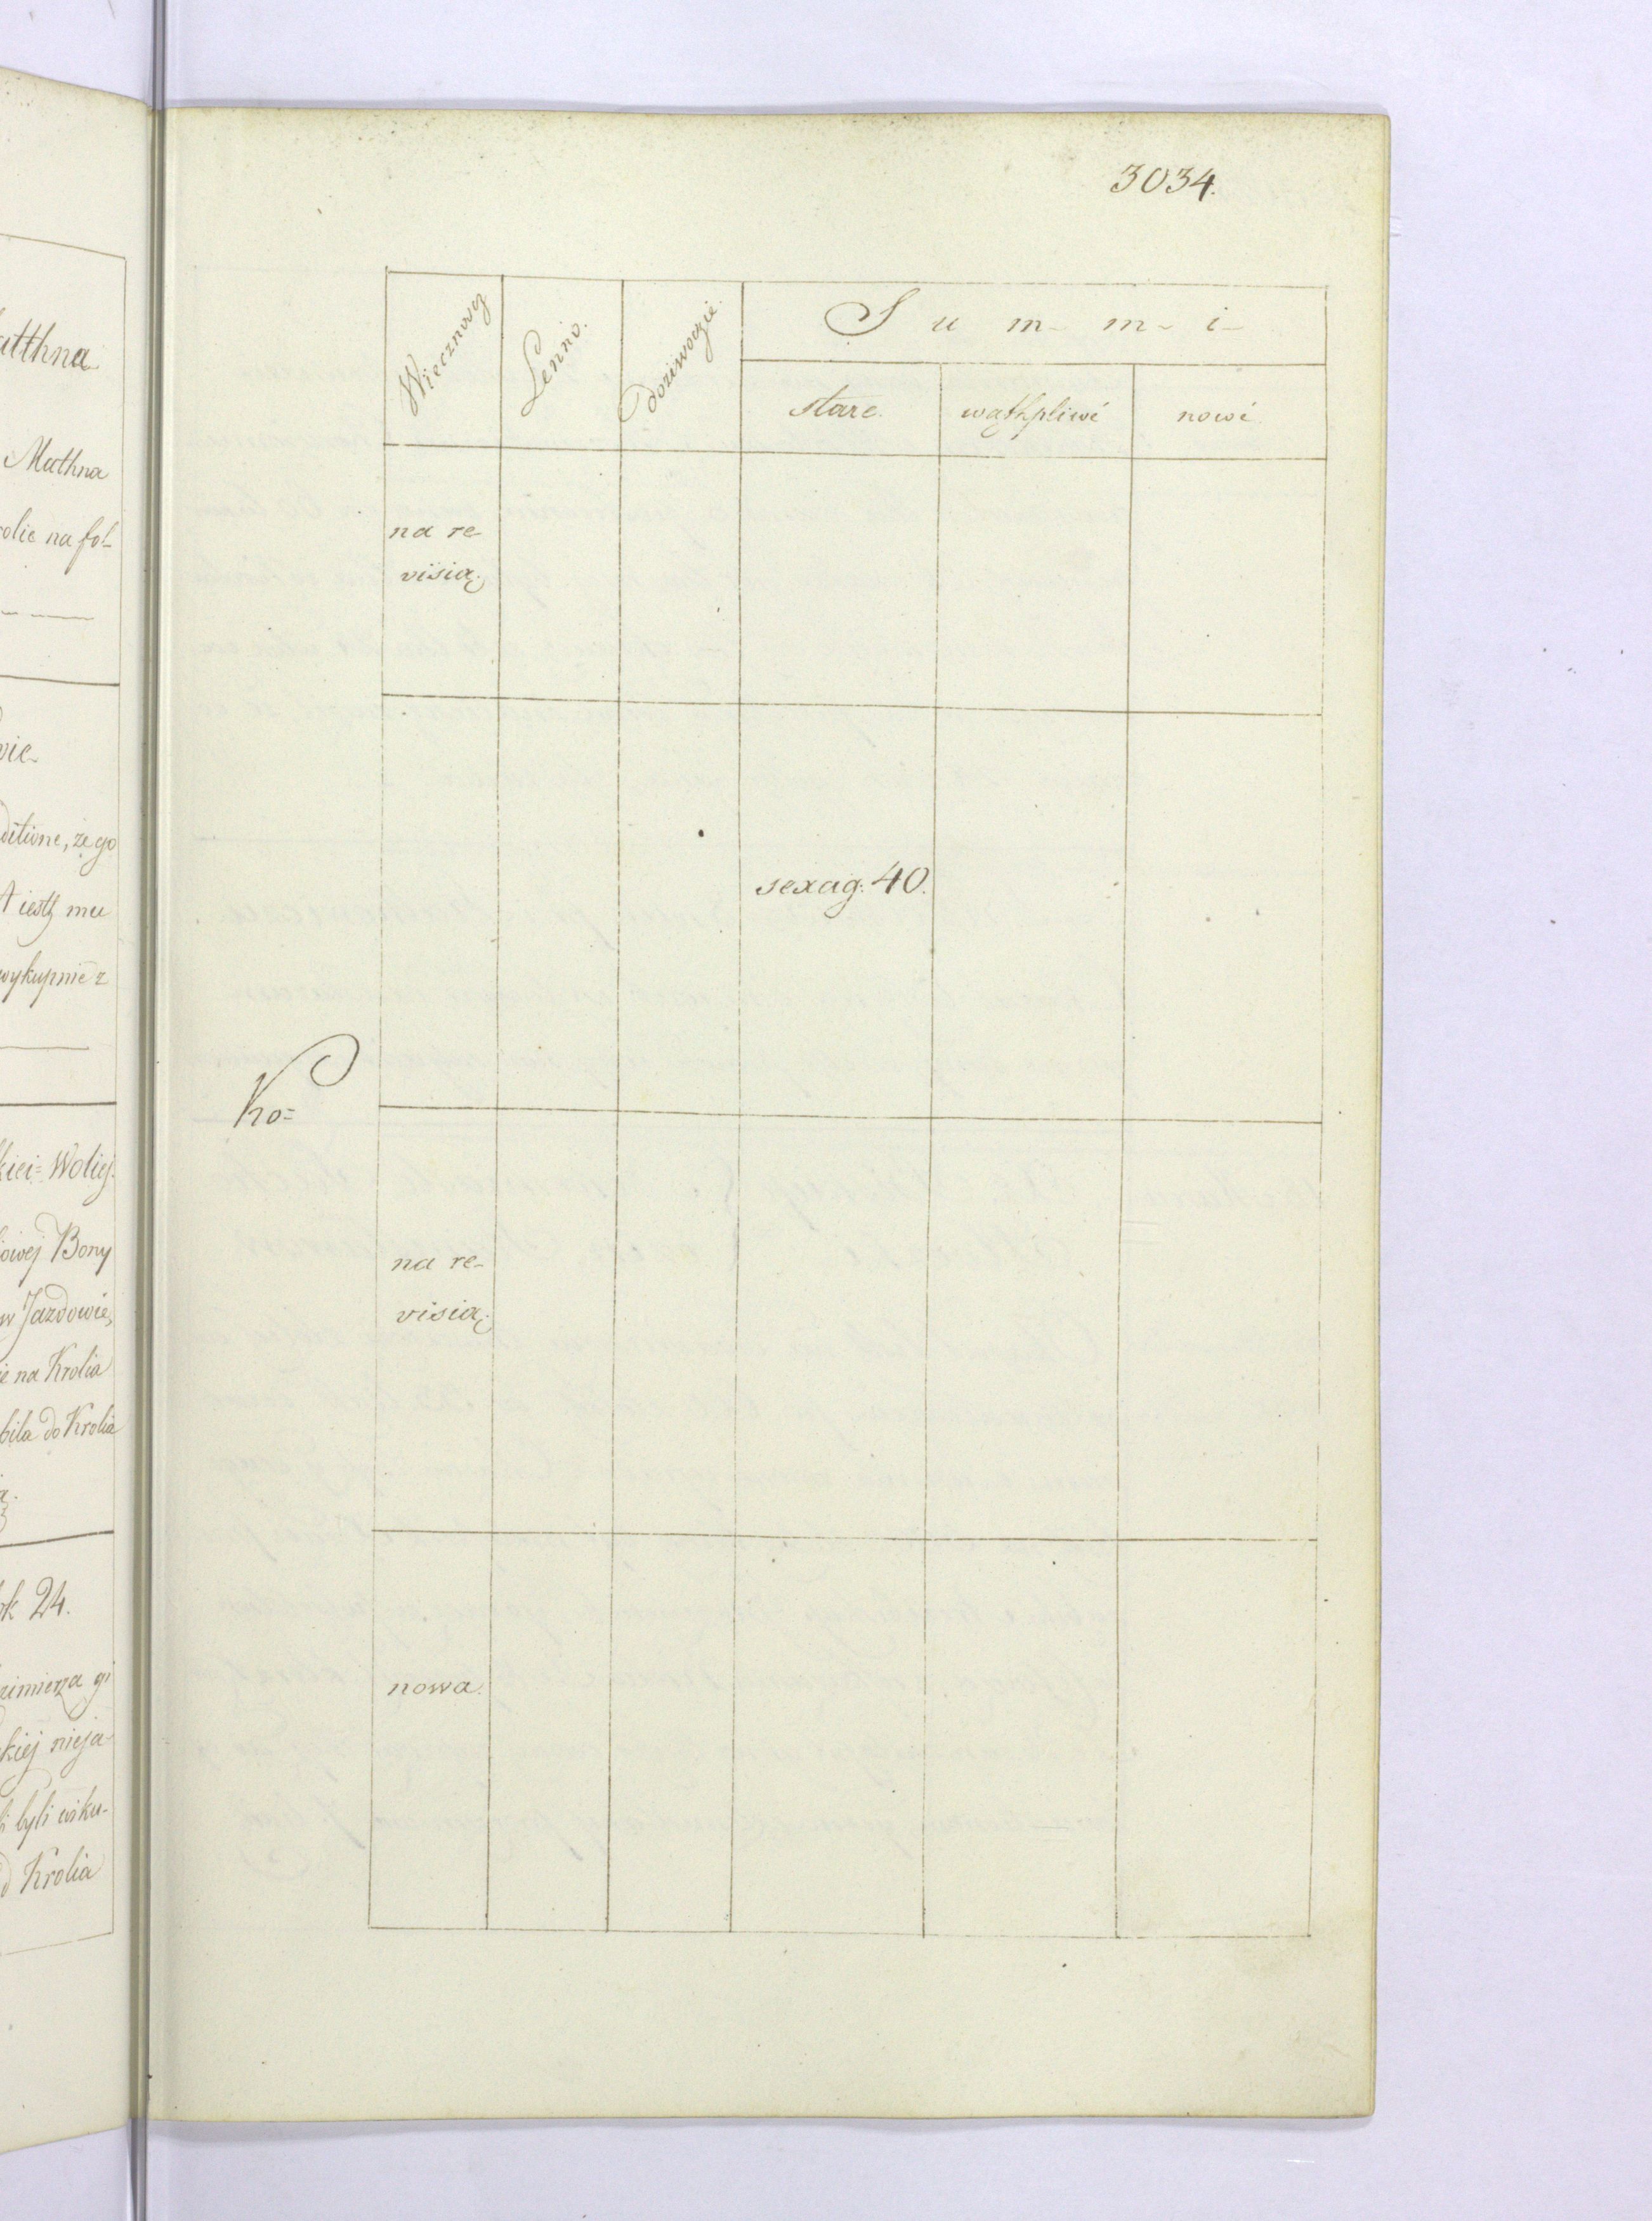 atthna
Mathna
rolie na fol
wie
ditione, że go
A iestz mu
wykupnie z
kiei=Woliej
iowej Bony
w Jazdowie,
ie na Krolia
bila do Krolia
ok 24.
zimierza gi
kiej nieja-
li byli wiku-
d Krolia
3034.
Wiecznosez
Lenno.
Doziwoczie.
S u m m i
stare.
wathpliwé
nowé
na re-
visią;
sexag. 40.
Ko=
na re-
visią;
nowa.